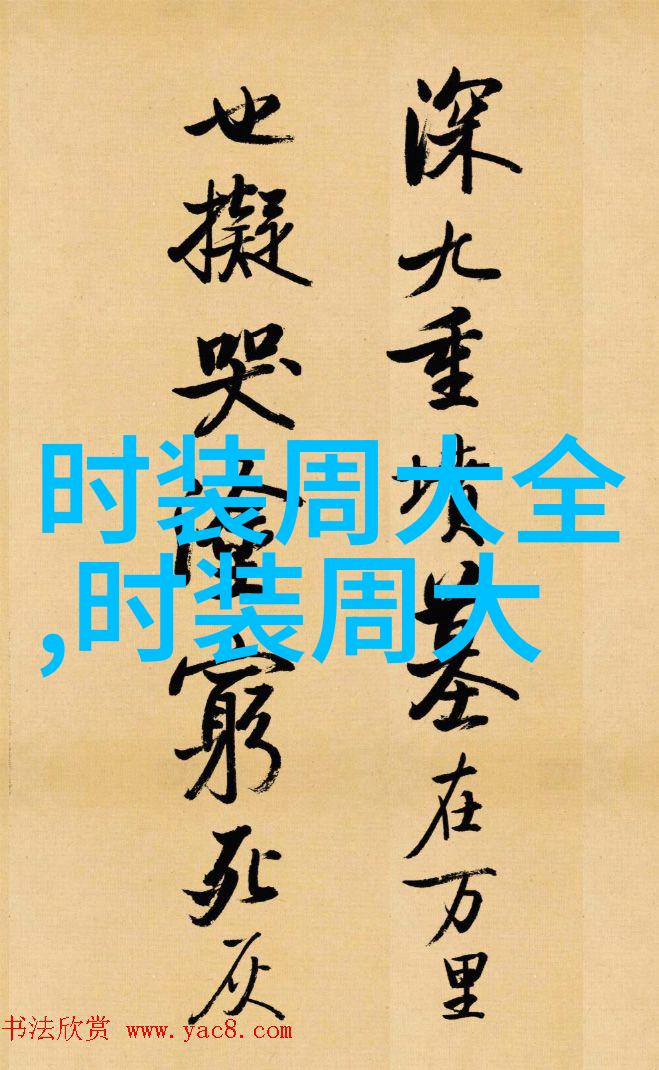 深九重墳墓在万里
也擬哭塗窮死灰
时装周大全
,时装周大
书法欣赏 www.yac8.com